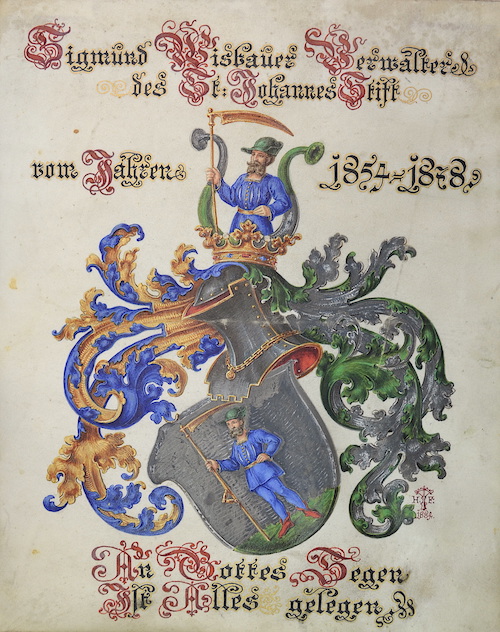 Sigmund Wisbauer Verwalter
des St: Johannes Stift
vom Jahren 1854=1878.
An Gottes Segen
Ist Alles gelegen